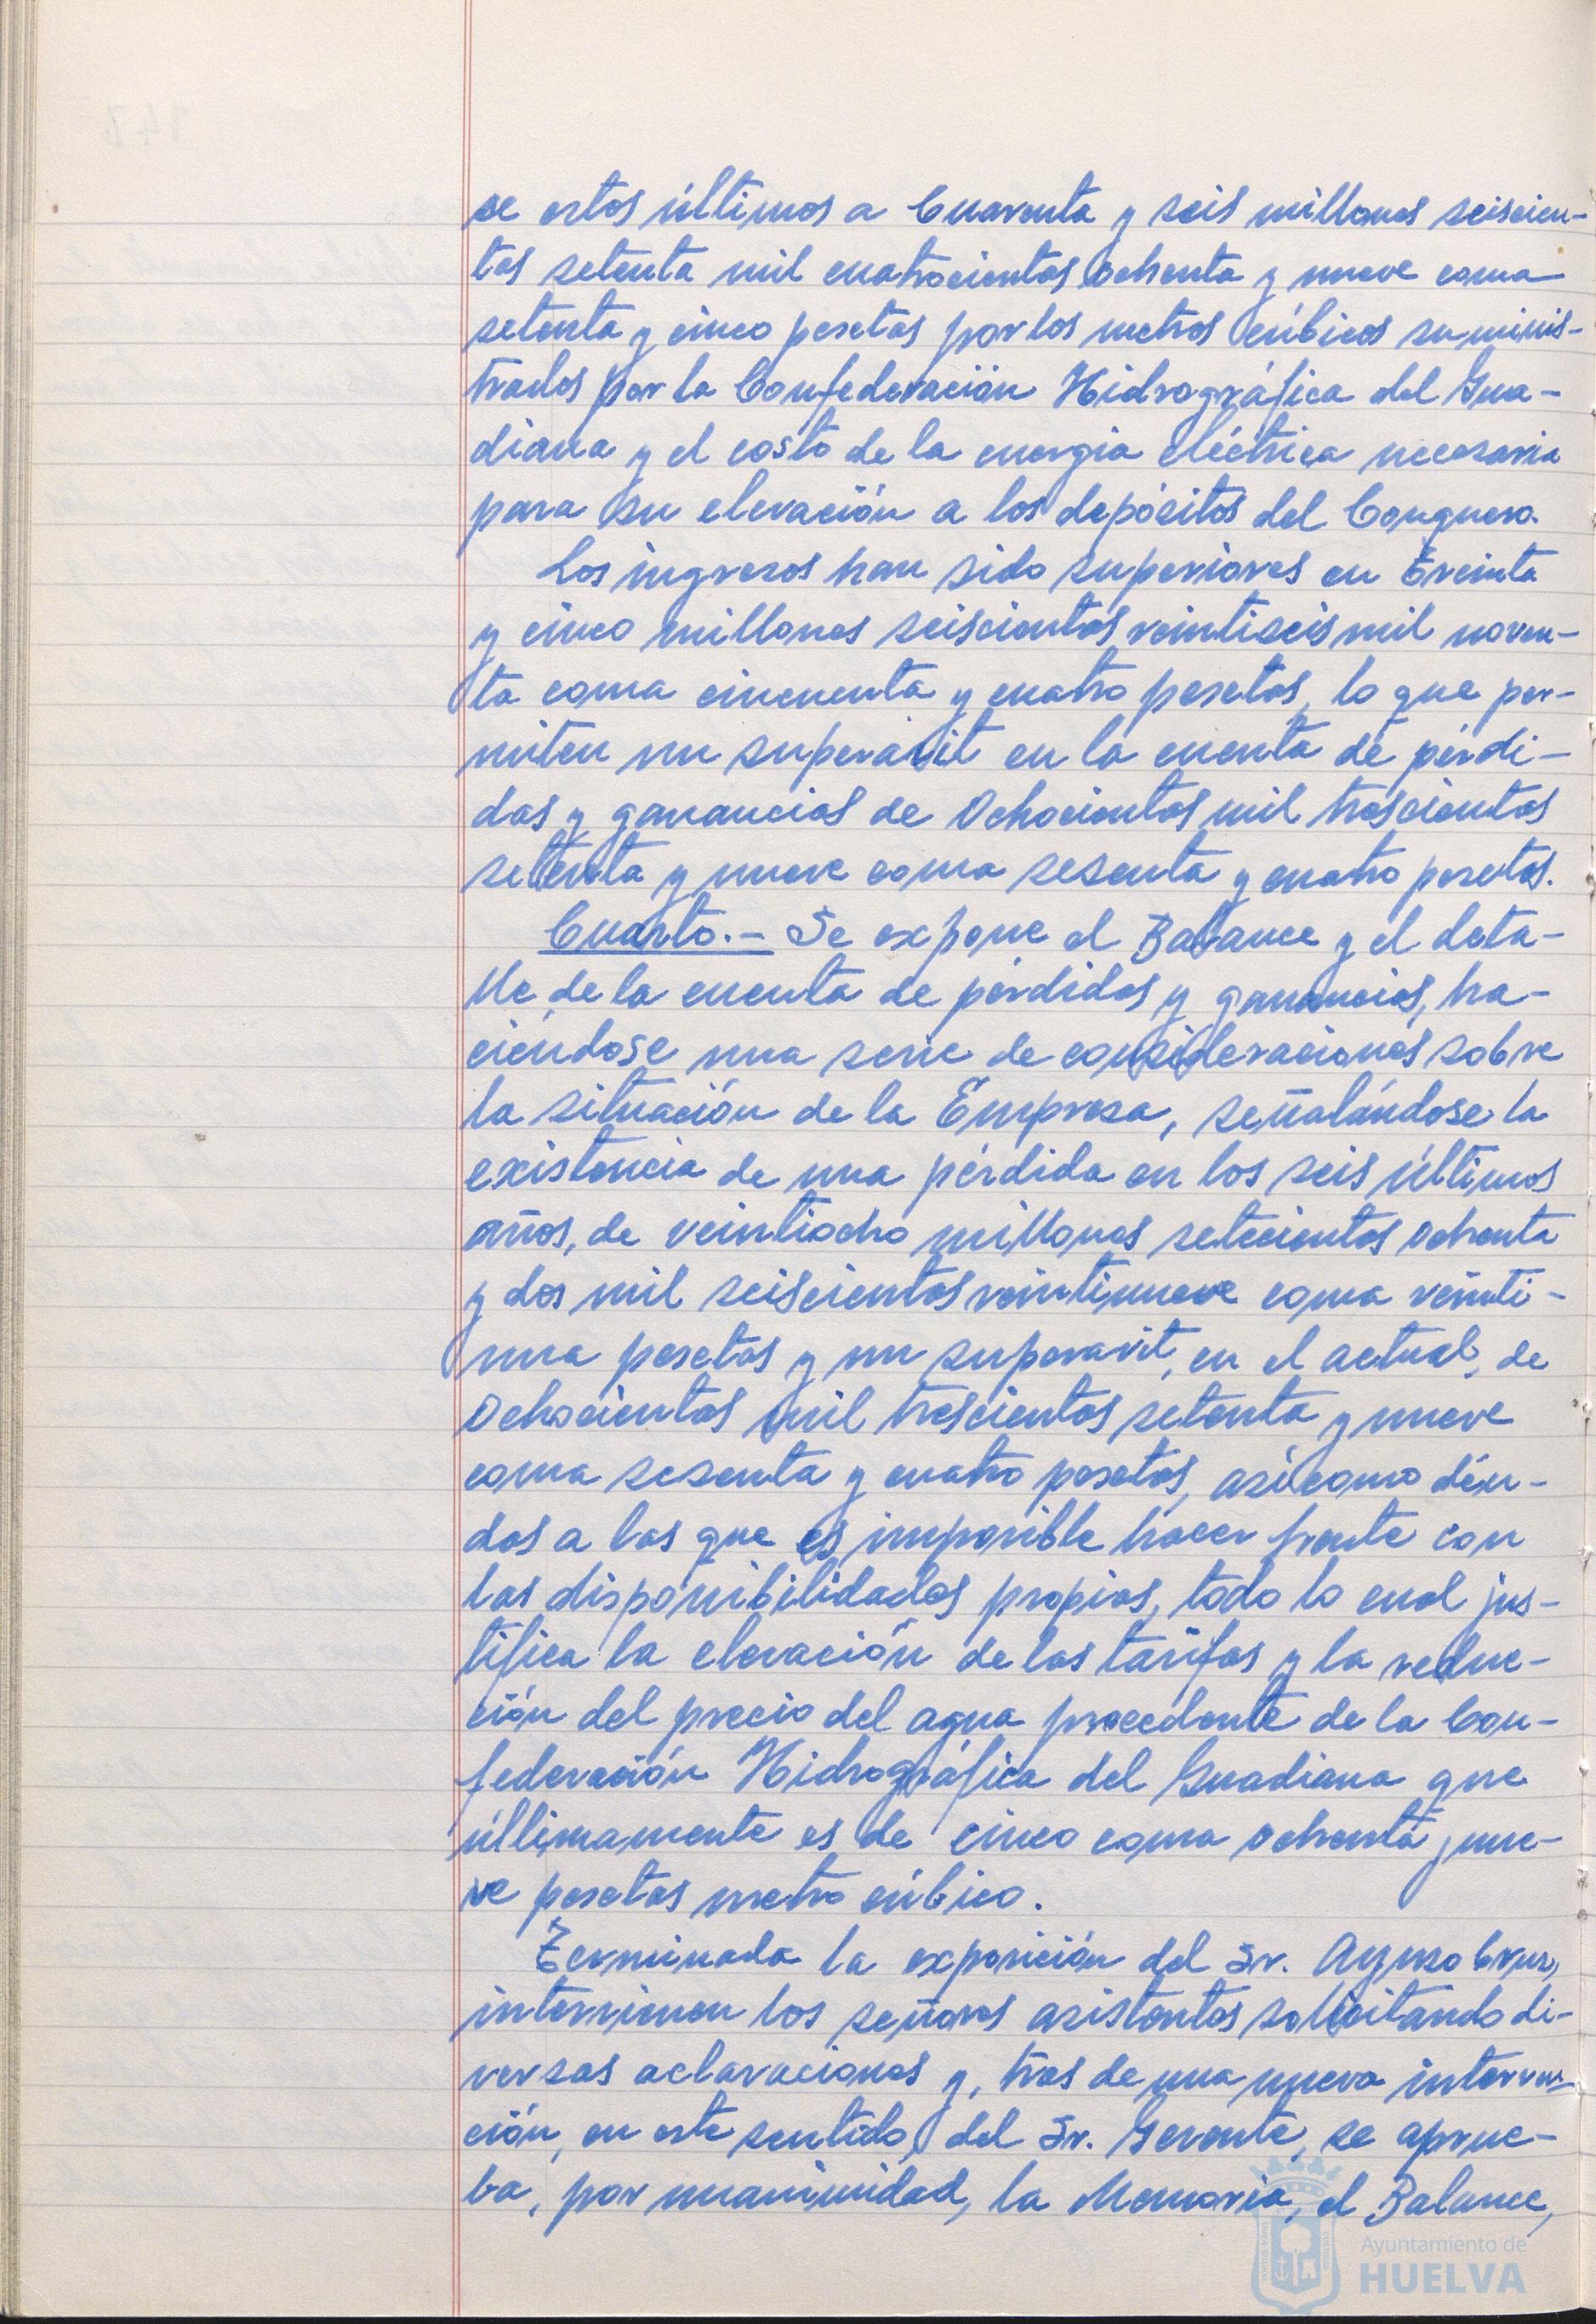 se estos últimos a Cuarenta y seis millones seiscien-
tas setenta mil cuatrocientas ochenta y nueve coma
setenta y cinco pesetas por los metros cúbicos suminis-
trados por la Confederación Hidrográfica del Gua-
diana y el costo de la energia eléctrica necesaria
para su elevación a los depósitos del Conquero.
Los ingresos han sido superiores en Treinta
y cinco millones seiscientos veintiseis mil noven-
ta coma cincuenta y cuatro pesetas, lo que per-
miten un superávit en la cuenta de pérdi-
das y ganancias de Ochocientas mil trescientas
setenta y nueve coma sesenta y cuatro pesetas.
Cuarto.- Se expone el Balance y el deta-
lle de la cuenta de pérdidas y ganancias, ha-
ciéndose una serie de consideraciones sobre
la situación de la Empresa, señalándose la
existencia de una pérdida en los seis últimos
años, de veintiocho millones setecientas ochenta
y dos mil seiscientas veintinueve coma veinti-
una pesetas y un superavit, en el actual, de
Ochocientas mil trescientas setenta y nueve
coma sesenta y cuatro pesetas, así como deu-
das a las que es imposible hacer frente con
las disponibilidades propias, todo lo cual jus-
tifica la elevación de las tarifas y la reduc-
ción del precio del agua procedente de la Con-
federación Hidrográfica del Guadiana que
últimamente es de cinco coma ochenta y nue-
ve pesetas metro cúbico.
Terminada la exposición del Sr. Ayuso Cruz,
intervienen los señores asistentes solicitando di-
versas aclaraciones y, tras de una nueva interven-
ción, en este sentido, del Sr. Gerente, se aprue-
ba, por unanimidad, la Memoria, el Balance,
Ayuntamiento de
HUELVA